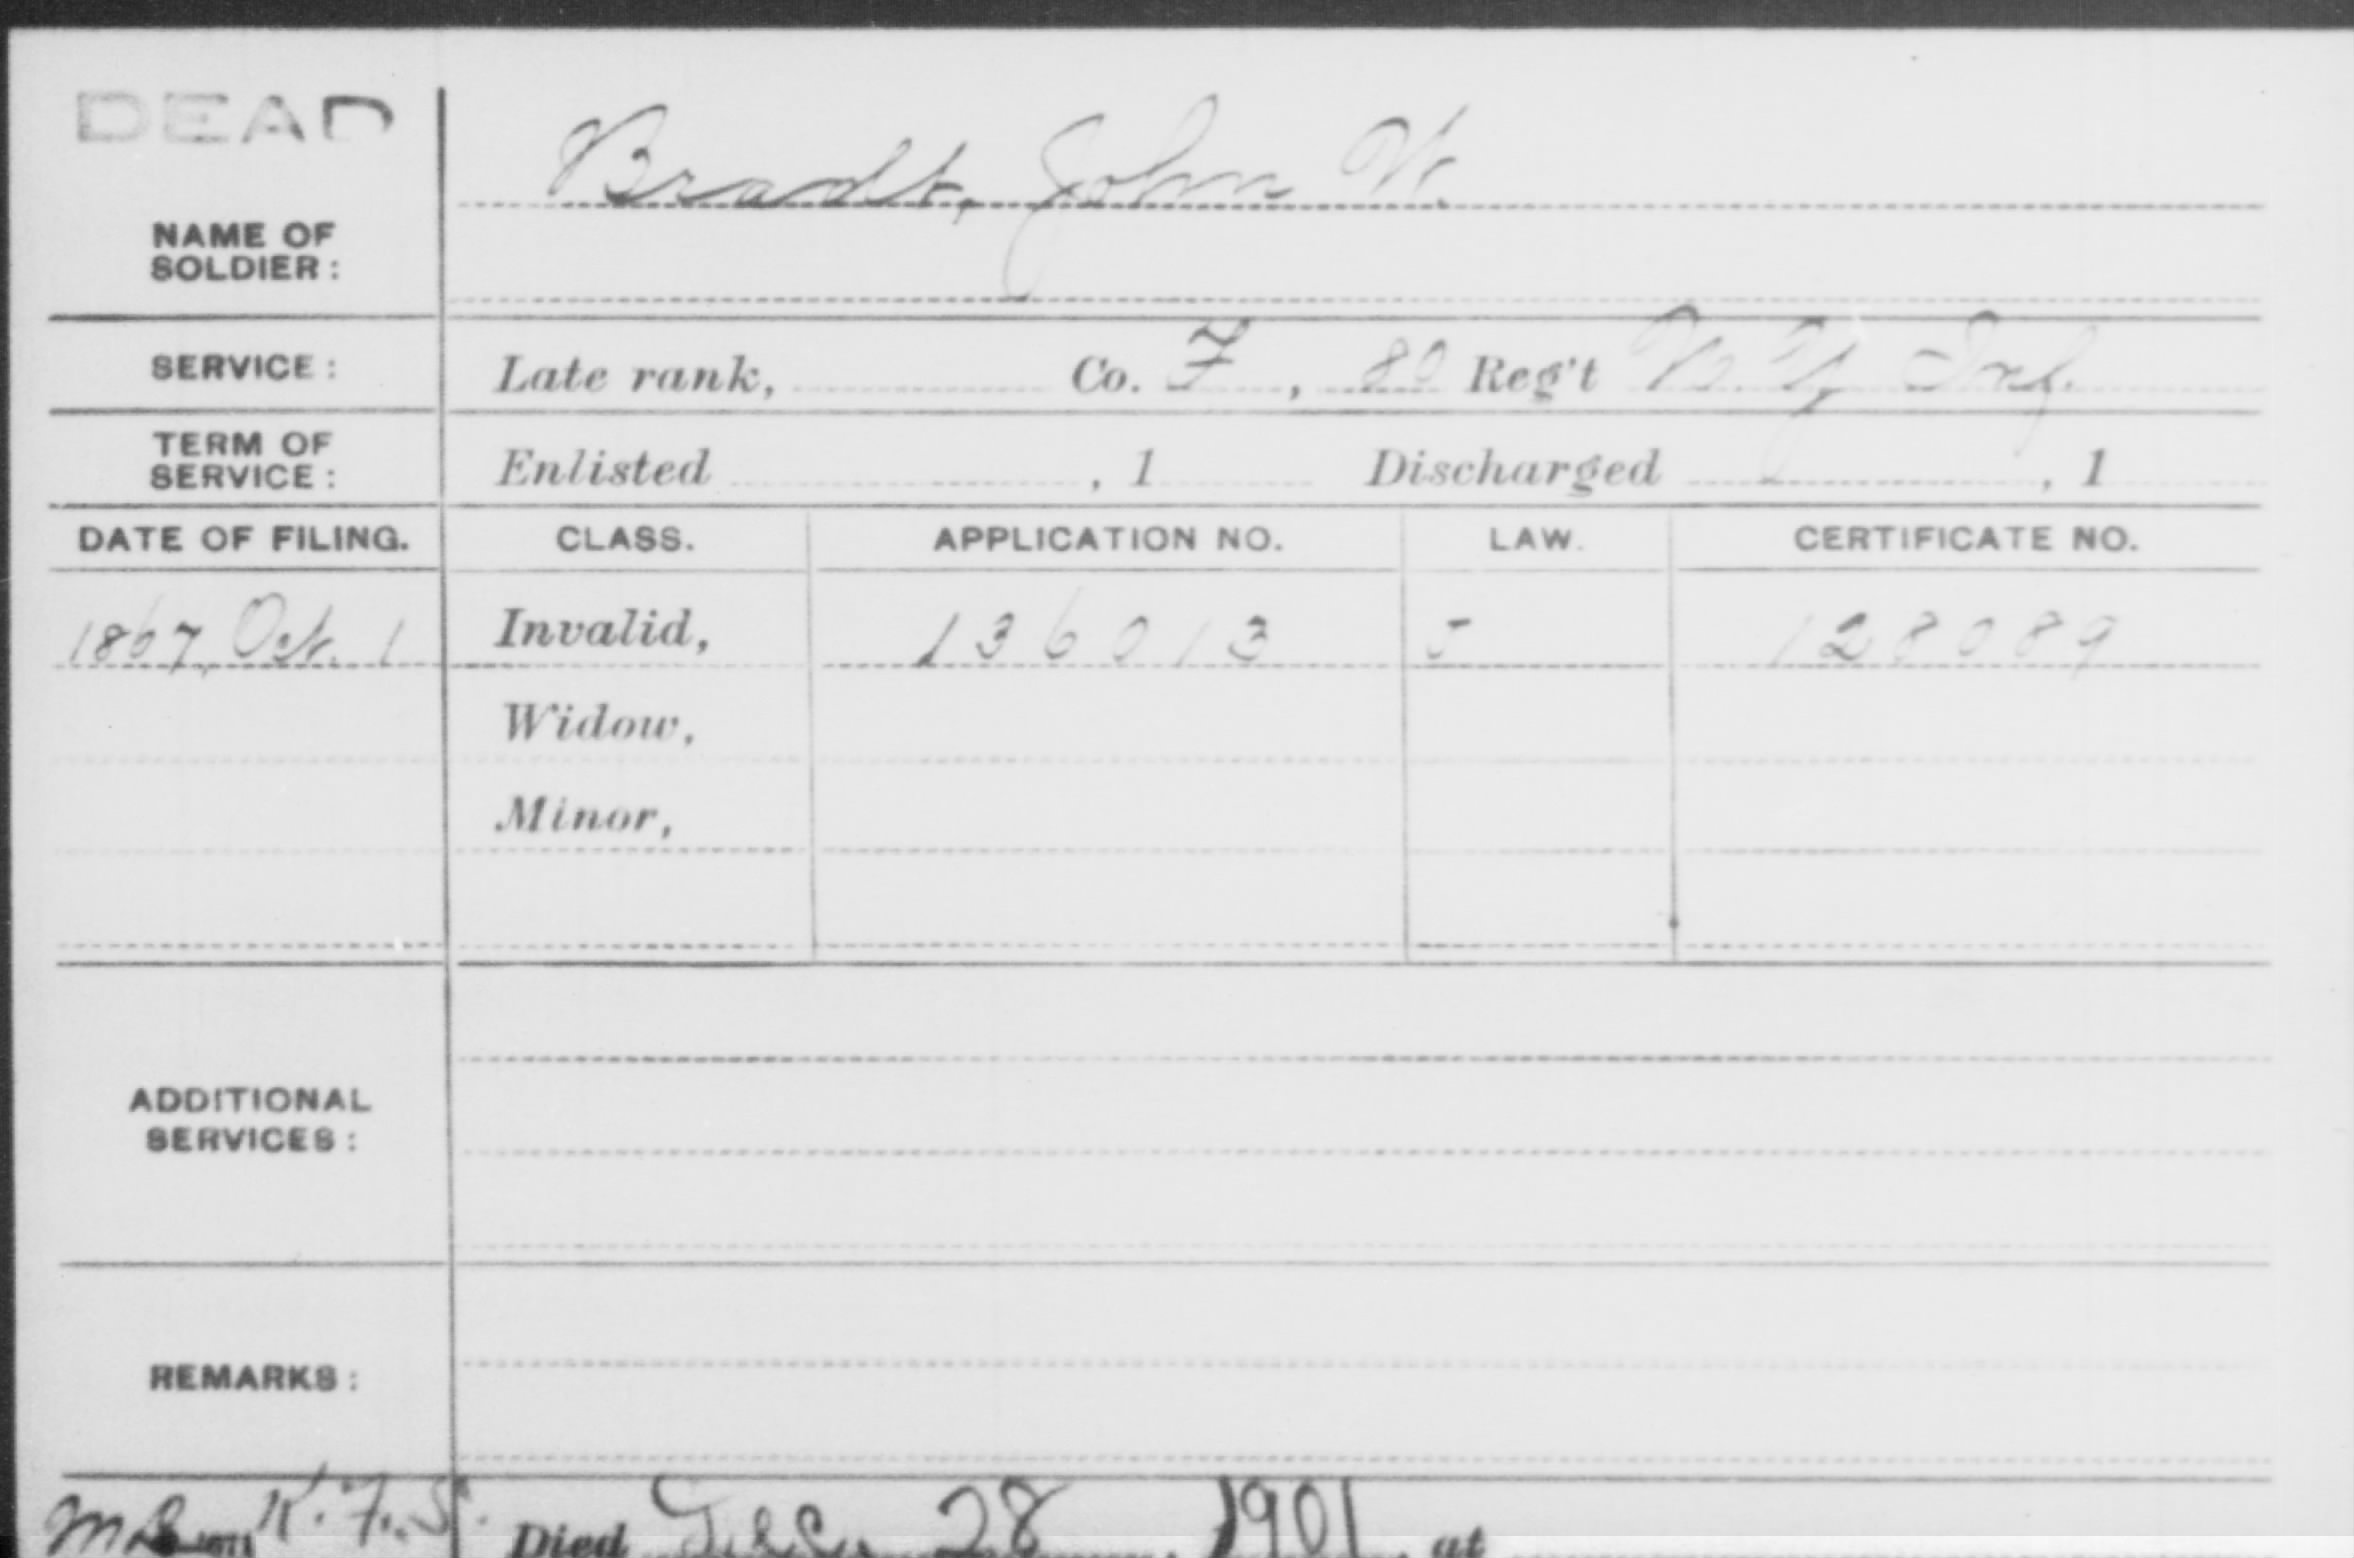 DEAD
Bradt, John W.
NAME OF
SOLDIER:
SERVICE: Late rank, Co. F, 80 Reg't N.Y. Inf.
TERM OF
SERVICE: Enlisted , 1 Discharged , 1
DATE OF FILING. CLASS. APPLICATION NO. LAW. CERTIFICATE NO.
1867, Oct. 1 Invalid, 136013 128089
Widow,
Minor,
ADDITIONAL
SERVICES:
REMARKS:
K.F.S. Died 28, 1901, at